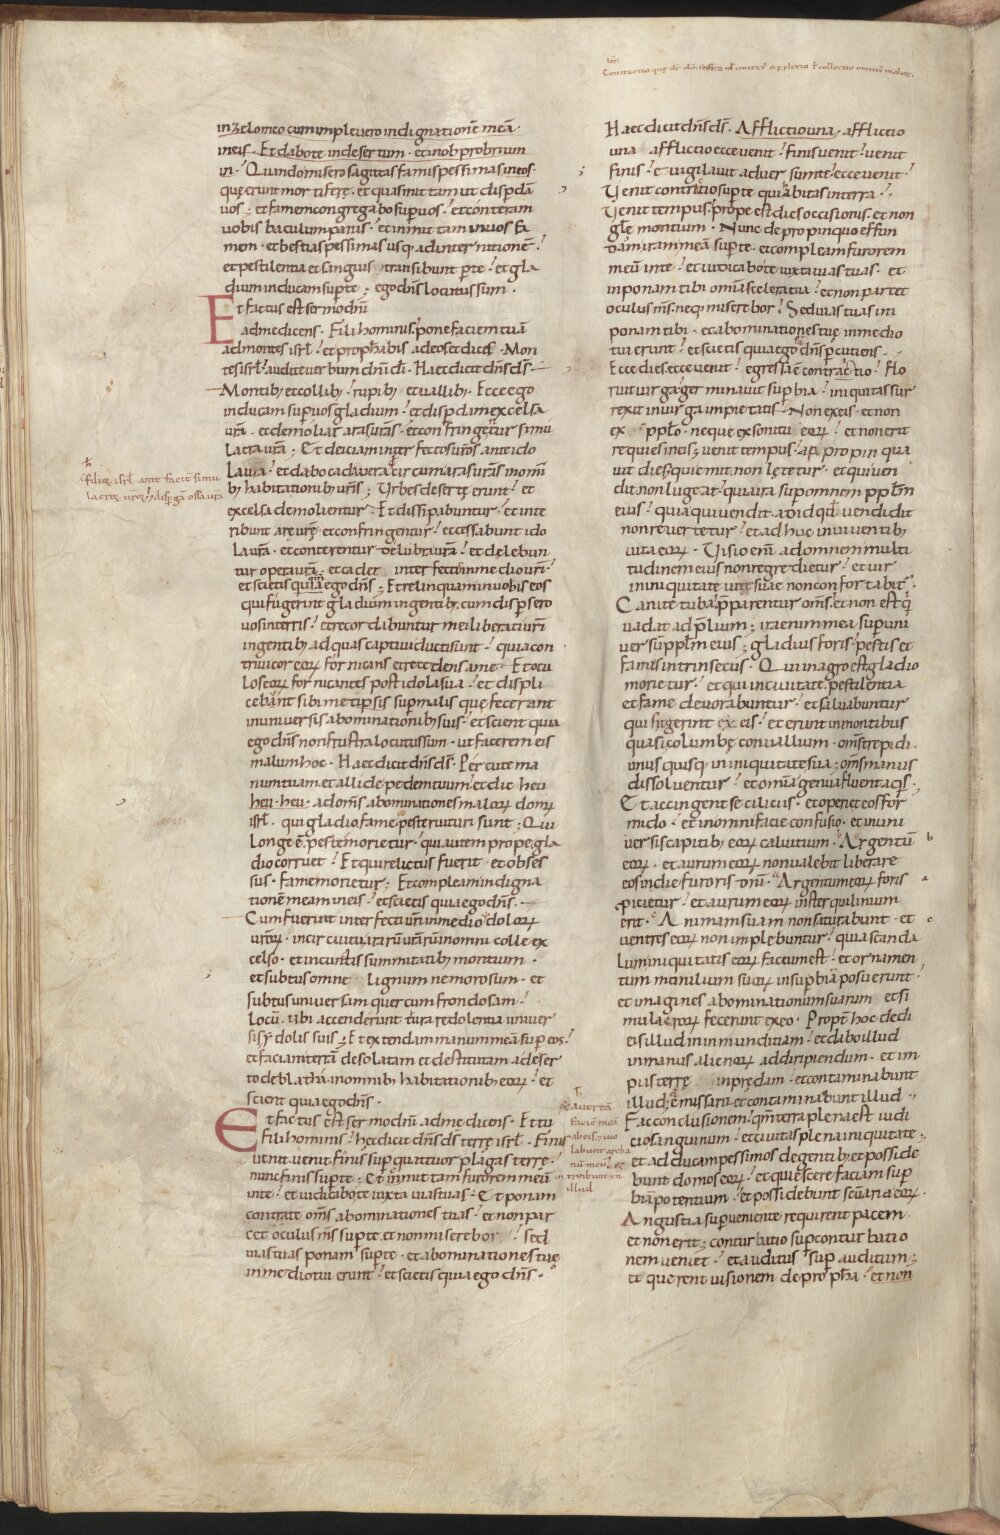 in zelo meo cum implevero indignationē meā ·
in eis · Et dabo te in desertum · et in obprobrium
in · Quando misero sagittas famis pessimas in eos ·
que erunt mortifere · et quas mittam ut disp̄dā
vos ; et famem congregabo sup̄ vos · et conteram
vobis baculum panis · et inmittam in vos fa
men · et bestias pessimas usq; ad internitionē ·
et pestilentia et sanguis transibunt p̄ te · et gla
dium inducam sup̄ te ; ego dn̄s locutus sum ·
Et factus est sermo dn̄i
ad me dicens · Fili hominis pone faciem tuā
ad montes isrl̄ · et prophabis ad eos et dices · Mon
tes isrl̄ audite verbum dn̄i di · Haec dicit dn̄s ds̄ ·
Montib; et collib; · rupib; et vallib; · Ecce ego
inducam sup̄ vos gladium · et disp̄dam excelsa
vr̄a · et demoliar aras vr̄as · et confringetur simu
lacra vr̄a ; Et deiciam interfectos vr̄os ante ido
la vr̄a · et dabo cadavera circum aras vr̄as in omni
b; habitationib; vr̄is ; Urbes deserte erunt · et
excelsa demolientur · Et dissipabuntur · et inte
ribunt are vr̄e · et confringentur · et cessabunt ido
la vr̄a · et conterentur delubra vr̄a · et delebun
tur opera vr̄a · et cadet interfectus in medio vr̄i ·
et scietis quia ego dn̄s ; Et relinquam in vobis eos
qui fugerint gladium in gentib; cum disp̄sero
vos in terris · et recordabuntur mei liberati vr̄i
in gentib; ad quas captivi ducti sunt · quia con
trivi cor eorū fornicans et recedens a me · Et ocu
los eorū fornicantes post idola sua · et displi
cebunt sibimetipsis sup̄ malis que fecerant
in universis abominationib; suis · et scient quia
ego dn̄s non frustra locutus sum · ut facerem eis
malum hoc · Haec dicit dn̄s ds̄ · Percute ma
num tuam et allide pedem tuum et dic heu
heu · heu · ad om̄s abominationes malorū domꝰ
isrl̄ · qui gladio fame peste ruituri sunt ; Qui
longe ē peste morietur · qui autem prope gla
dio corruet · Et qui relictus fuerit et obses
sus · fame morietur ; Et compleam indigna
tionē meam in eis · et scietis quia ego dn̄s ·
Cum fuerint interfecti vr̄i in medio idolorū
vr̄orū · in circuitu ararū vr̄arū in omni colle ex
celso · et in cunctis summitatib; montium ·
et subtus omne lignum nemorosum · et
subtus universam quercum frondosam ·
locū ubi accenderunt tura redolentia univer
sis idolis suis ; Et extendam manum meā sup̄ eos ·
et faciam terrā desolatam et destitutam a deser
to deblatha in omnib; habitationib; eorū · et
scient quia ego dn̄s ·
Et factus est sermo dn̄i ad me dicens · Et tu
fili hominis · hec dicit dn̄s ds̄ terre isrl̄ · Finis
venit venit finis sup̄ quattuor plagas terre ·
nunc finis sup̄ te ; Et inmittam furorem meū
in te · et iudicabo te iuxta vias tuas · Et ponam
contra te om̄s abominationes tuas · et non par
cet oculus ms̄ sup̄ te et non miserebor · sed
vias tuas ponam sup̄ te · et abominationes tue
in medio tui erunt · et scietis quia ego dn̄s ·
filiorū isrl̄ ante faciē simu
lacrorū vr̄orū et disp̄gā ossa vr̄a
Contractio
Haec dicit dn̄s ds̄ · Afflictio una · afflictio
una afflictio ecce venit · finis venit · venit
finis · evigilavit adversum te · ecce venit ·
Venit contritio sup̄ te qui habitas in terra ·
Venit tempus · prope est dies occisionis · et non
gle montium · Nunc de propinquo effun
dam iram meā sup̄ te · et compleam furorem
meū in te · et iudicabo te iuxta vias tuas · et
inponam tibi omīa scelera tua · et non parcet
oculus ms̄ neq; miserebor · Sed vias tuas in
ponam tibi · et abominationes tue in medio
tui erunt · et scietis quia ego sū dn̄s p̄cutiens ·
Ecce dies ecce venit · egressa ē contractio · flo
ruit virga germinavit sup̄bia · iniquitas sur
rexit in virga impietatis · Non ex eis · et non
ex pplo · neque ex sonitu eorū · et non erit
requies in eis ; venit tempus apropinqua
vit dies qui emit non letetur · et qui ven
dit non lugeat · quia ira sup̄ omnem pplm
eius · quia qui vendit ad id qd̄ vendidit
non revertetur · et adhuc in viventib;
vita eorū · Visio enī ad omnem multi
tudinem eius non regredietur · et vir
in iniquitate vite suae non confortabit̄ ·
Canite tuba p̄parentur om̄s et non est q̄
vadat ad p̄lium ; ira enim mea sup̄ uni
versū pplm eius ; gladius foris · pestis et
famis intrinsecus · Qui in agro est gladio
morietur · et qui in civitate pestilentia
et fame devorabuntur · et salvabuntur
qui fugerint ex eis · et erunt in montibus
quasi columbe convallium · om̄s trepidi ·
unus quisq; in iniquitate sua ; om̄s manus
dissolventur · et omīa genua fluent aq̄s ·
Et accingent se ciliciis · et operiet eos for
mido · et in omni facie confusio · et in uni
versis capitib; eorū calvitium · Argentū
eorū · et aurum eorū non valebit liberare
eos in die furoris dn̄i · Argentum eorū foris
proicietur · et aurum eorū in sterquilinium
erit · Animam suam non saturabunt · et
ventres eorū non implebuntur · quia scanda
lum iniquitatis eorū factum est · et ornamen
tum monilium suorū in sup̄bia posuerunt ·
et imagines abominationum suarum et si
mulacrorū fecerunt ex eo · Propt̄ hoc dedi
eis illud in inmunditiam · et dabo illud
in manus alienorū ad diripiendum · et im
piis terre in predam · et contaminabunt
illud · emissarii et contaminabunt illud ·
Fac conclusionem · qm̄ terra plena est iudi
cio sanguinum · et civitas plena iniquitate ·
et adducam pessimos de gentib; et posside
bunt domos eorū · et quiescere faciam sup̄
biā potentium · et possidebunt sc̄uaria eorū ·
Angustia sup̄veniente requirent pacem
et non erit ; conturbatio sup̄ conturbatio
nem veniet · et auditus sup̄ auditum ;
et querent visionem de propha · et non
et avertā
faciē meā
ab eis · et vio
labunt archa
nū meū · et
introibunt in
illud